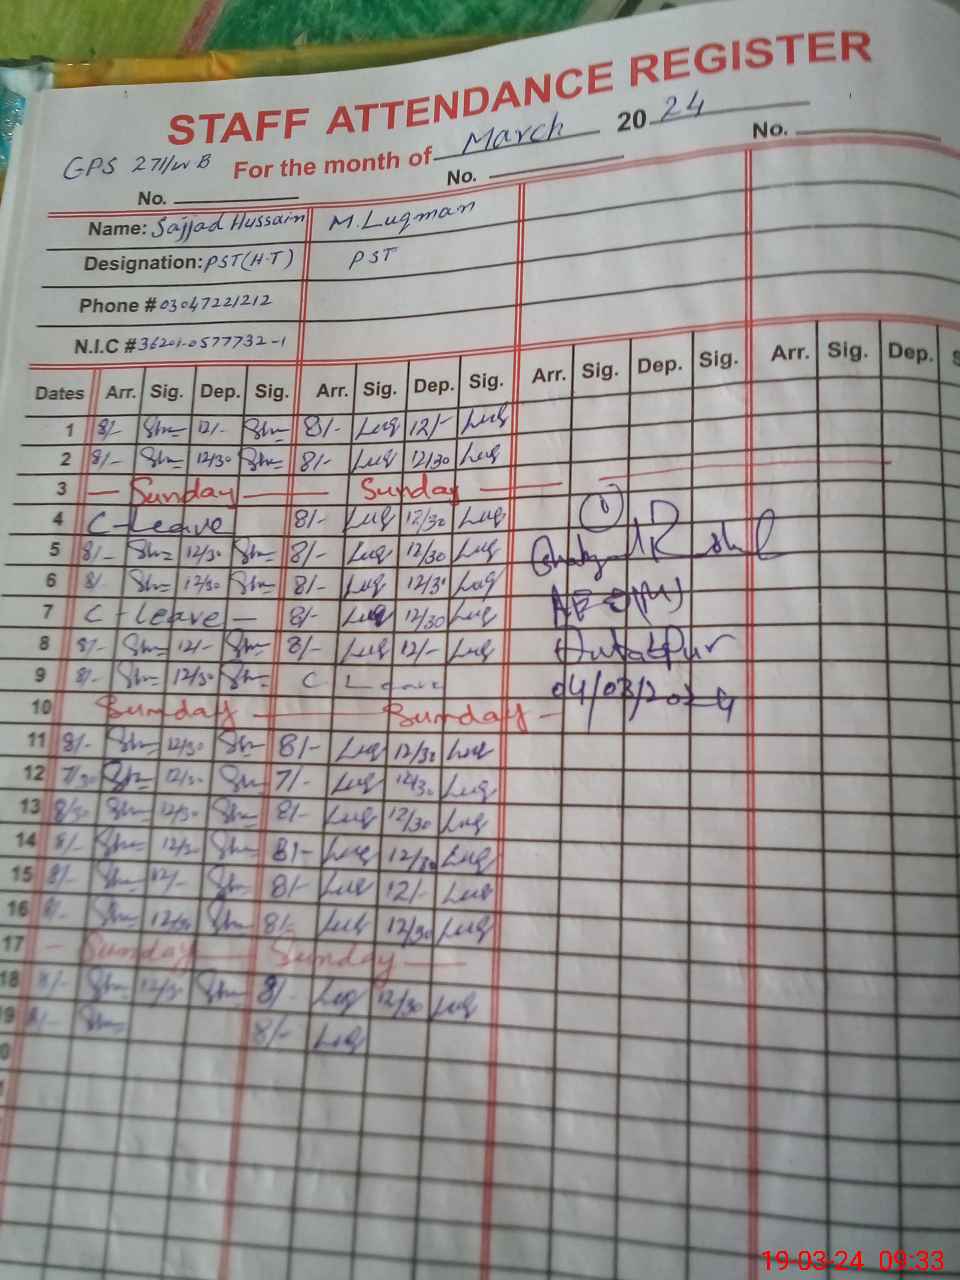 STAFF ATTENDANCE REGISTER
GPS 271/WB For the month of March 2024
No. No. No.
Name: Sajjad Hussain M. Luqman
Designation: PST(H.T) PST
Phone # 03047221212
N.I.C # 36201-0577732-1
Dates Arr. Sig. Dep. Sig. Arr. Sig. Dep. Sig. Arr. Sig. Dep. Sig. Arr. Sig. Dep. S
1 8/- 12/- 8/- Luq 12/- Luq
2 8/- 12/30 8/- Luq 12/30 Luq
3 — Sunday — Sunday —
4 C-Leave 8/- Luq 12/30 Luq 1
5 8/- 12/30 8/- Luq 12/30 Luq
6 8/- 12/30 8/- Luq 12/30 Luq
7 C-Leave — 8/- Luq 12/30 Luq
8 8/- 12/- 8/- Luq 12/- Luq
9 8/- 12/30 C Leave 04/03/2024
10 Sunday — Sunday —
11 8/- 12/30 8/- Luq 12/30 Luq
12 7/30 12/30 7/- Luq 12/30 Luq
13 8/30 12/30 8/- Luq 12/30 Luq
14 8/- 12/30 8/- Luq 12/30 Luq
15 8/- 12/- 8/- Luq 12/- Luq
16 8/- 12/30 8/- Luq 12/30 Luq
17 — Sunday — Sunday —
18 8/- 12/30 8/- Luq 12/30 Luq
9 8/- 8/- Luq
0
19-03-24 09:33